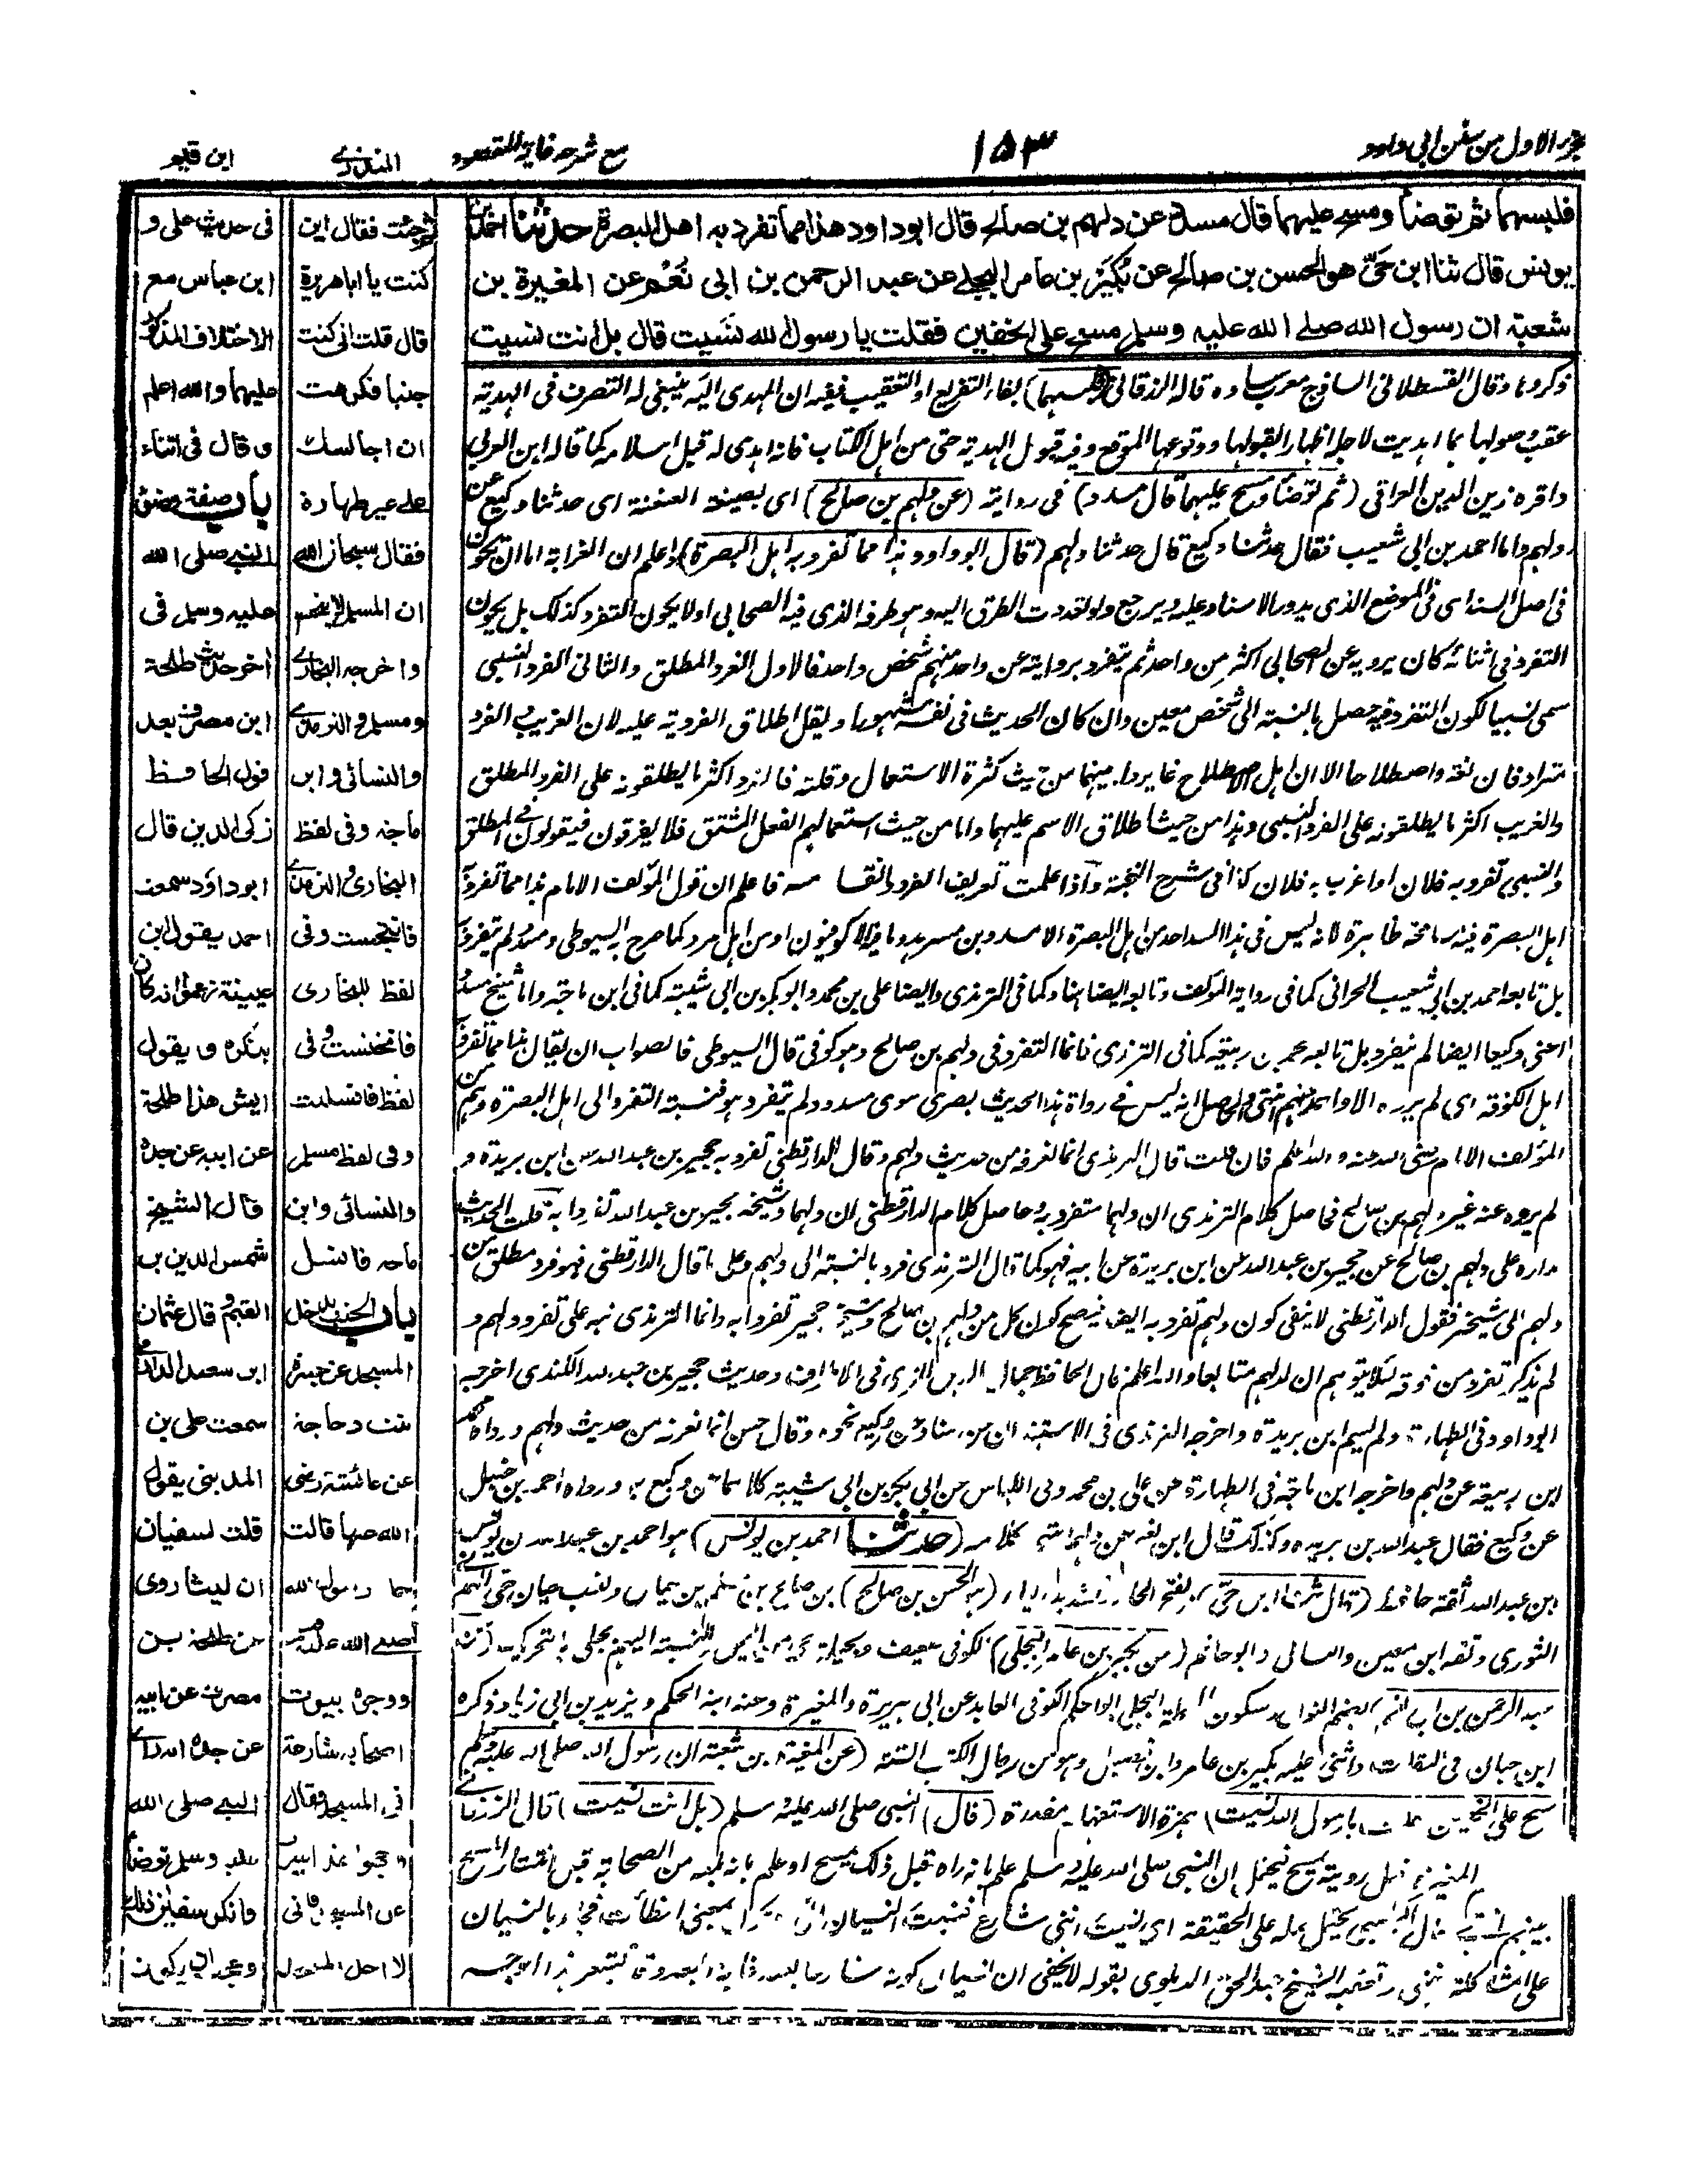 جزء الاول من سنن ابي داود
١٥٣
مع شرحه غاية المقصود
المنذري
ابن قيم
فلبسهما ثم توضأ ومسح عليهما قال مسدد عن دلهم بن صالح قال ابو داود هذا مما تفرد به اهل البصرة حدثنا احمد بن
يونس قال ثنا ابن حي هو الحسن بن صالح عن بكير بن عامر البجلي عن عبد الرحمن بن ابي نعم عن المغيرة بن
شعبة ان رسول الله صلى الله عليه وسلم مسح على الخفين فقلت يا رسول الله نسيت قال بل انت نسيت
وقال القسطلاني الساذج معرب ساده قاله الزرقاني (فلبسهما) بفاء التفريع او التعقيب ففيه ان المهدى اليه ينبغي له التصرف في الهدية
عقب وصولها بما اهديت لاجله اظهارا لقبولها ووقوعها الموقع وفيه قبول الهدية حتى من اهل الكتاب فانه اهدى له قبل اسلامه كما قاله ابن العربي
واقره زين الدين العراقي (ثم توضأ ومسح عليهما قال مسدد) في روايته (عن دلهم بن صالح) اي بصيغة العنعنة اي حدثنا وكيع عن
دلهم واما احمد بن ابي شعيب فقال حدثنا وكيع قال حدثنا دلهم (قال ابو داود هذا مما تفرد به اهل البصرة) واعلم ان الغرابة اما ان تكون
في اصل السند اي في الموضع الذي يدور الاسناد عليه ويرجع ولو تعددت الطرق اليه وهو طرفه الذي فيه الصحابي او لا يكون التفرد كذلك بل يكون
التفرد في اثنائه كان يرويه عن الصحابي اكثر من واحد ثم يتفرد بروايته عن واحد منهم شخص واحد فالاول الفرد المطلق والثاني الفرد النسبي
سمى نسبيا لكون التفرد فيه حصل بالنسبة الى شخص معين وان كان الحديث في نفسه مشهورا ويقل اطلاق الفردية عليه لان الغريب والفرد
مترادفان لغة واصطلاحا الا ان اهل الاصطلاح غايروا بينهما من حيث كثرة الاستعمال وقلته فالفرد اكثر ما يطلقونه على الفرد المطلق
والغريب اكثر ما يطلقونه على الفرد النسبي وهذا من حيث اطلاق الاسم عليهما واما من حيث استعمالهم الفعل المشتق فلا يفرقون فيقولون في المطلق
والنسبي تفرد به فلان او اغرب به فلان كذا في شرح النخبة واذا علمت تعريف الفرد وانقسامه فاعلم ان قول المؤلف الامام هذا مما تفرد به
اهل البصرة فيه مسامحة ظاهرة لانه ليس في هذا السند احد من اهل البصرة الا مسدد بن مسرهد وما فيه الا كوفيون او من اهل مرو كما صرح به السيوطي ومسدد لم يتفرد به
بل تابعه احمد بن ابي شعيب الحراني كما في رواية المؤلف وتابعه ايضا هناد كما في الترمذي وايضا علي بن محمد وابو بكر بن ابي شيبة كما في ابن ماجة واما شيخ مسدد
اعني وكيعا ايضا لم يتفرد بل تابعه محمد بن ربيعة كما في الترمذي فانما التفرد في دلهم بن صالح وهو كوفي قال السيوطي فالصواب ان يقال هذا مما تفرد به
اهل الكوفة اي لم يروه الا واحد منهم انتهى والحاصل انه ليس في رواة هذا الحديث بصري سوى مسدد ولم يتفرد هو فنسبة التفرد الى اهل البصرة وهم من
المؤلف الامام رضي الله عنه والله اعلم فان قلت قال الترمذي انما نعرفه من حديث دلهم وقال الدارقطني تفرد به حجير بن عبد الله عن ابن بريدة و
لم يروه عنه غير دلهم بن صالح فحاصل كلام الترمذي ان دلهما متفرد به وحاصل كلام الدارقطني ان دلهما وشيخه حجير بن عبد الله تفردا به قلت الحديث
مداره على دلهم بن صالح عن حجير بن عبد الله عن ابن بريدة عن ابيه فهو كما قال الترمذي فرد بالنسبة الى دلهم وعلى ما قال الدارقطني فهو فرد مطلق من
دلهم الى شيخه فقول الدارقطني لا ينفي كون دلهم تفرد به ايضا فيصح كون كل من دلهم بن صالح وشيخه حجير تفردا به وانما الترمذي نبه على تفرد دلهم و
لم يذكر تفرد من فوقه لئلا يتوهم ان لدلهم متابعا والله اعلم قال الحافظ جمال الدين المزي في الاطراف وحديث حجير بن عبد الله الكندي اخرجه
ابو داود في الطهارة ولم يسم ابن بريدة واخرجه الترمذي في الاستئذان عن هناد عن وكيع نحوه وقال حسن انما نعرفه من حديث دلهم ورواه محمد
ابن ربيعة عن دلهم واخرجه ابن ماجة في الطهارة عن علي بن محمد وفي اللباس عن ابي بكر بن ابي شيبة كلاهما عن وكيع به ورواه احمد بن حنبل
عن وكيع فقال عبد الله بن بريدة وكذلك قال ابو نعيم عن دلهم انتهى كلامه (حدثنا احمد بن يونس) هو احمد بن عبد الله بن يونس
ابن عبد الله ثقة حافظ (قال ثنا ابن حي) بفتح الحاء وتشديد الياء (هو الحسن بن صالح) بن صالح بن مسلم بن حيان ولقب حيان حي
الثوري وثقه ابن معين والنسائي وابو حاتم (عن بكير بن عامر البجلي) الكوفي ضعيف وبجيلة حي من اليمن والنسبة اليهم بجلي بالتحريك (عن
عبد الرحمن بن ابي نعم) بضم النون وسكون المهملة البجلي ابو الحكم الكوفي العابد عن ابي هريرة والمغيرة وعنه ابنه الحكم ويزيد بن ابي زياد وذكره
ابن حبان في الثقات واثنى عليه بكير بن عامر وابن فضيل وهو من رجال الكتب الستة (عن المغيرة بن شعبة ان رسول الله صلى الله عليه وسلم
مسح على الخفين فقلت يا رسول الله نسيت) بهمزة الاستفهام مقدرة (قال) النبي صلى الله عليه وسلم (بل انت نسيت) قال الزرقاني
رويته يمسح فيحتمل ان النبي صلى الله عليه وسلم علم بانه راه قبل ذلك يمسح او علم بانه بلغه من الصحابة قبل انتشار المسح
بينهم انتهى قال يحتمل حمله على الحقيقة اي نسيت انني شارع فنسبت النسيان الي بمعنى اخطأت فجاء بالنسيان
على المشاكلة انتهى وتعقبه الشيخ عبد الحق الدهلوي بقوله لا يخفى ان نسيان كونه شارعا
ثم جئت فقال اين
كنت يا ابا هريرة
قال قلت اني كنت
جنبا فكرهت
ان اجالسك
على غير طهارة
فقال سبحان الله
ان المسلم لا ينجس
واخرجه البخاري
ومسلم والترمذي
والنسائي وابن
ماجه وفي لفظ
البخاري والترمذي
فانبجست وفي
لفظ للبخاري
فانخنست وفي
لفظ فانسللت
وفي لفظ مسلم
والنسائي وابن
ماجه فانسل
باب الجنب يدخل
المسجد عن جسرة
بنت دجاجة
عن عائشة رضي
الله عنها قالت
جاء رسول الله
صلى الله عليه وسلم
ووجوه بيوت
اصحابه شارعة
في المسجد فقال
وجهوا هذه البيوت
عن المسجد فاني
لا احل المسجد
في حديث علي و
ابن عباس مع
الاختلاف المذكور
عليهما والله اعلم
وقال في اثناء
باب صفة وضوء
النبي صلى الله
عليه وسلم في
اخر حديث طلحة
ابن مصرف بعد
قول الحافظ
زكي الدين قال
ابو داود سمعت
احمد يقول ابن
عيينة زعموا انه كان
ينكره ويقول
ايش هذا طلحة
عن ابيه عن جده
قال الشيخ
شمس الدين بن
القيم وقال عثمان
ابن سعيد الدارمي
سمعت علي بن
المديني يقول
قلت لسفيان
ان ليثا روى
عن طلحة بن
مصرف عن ابيه
عن جده انه رأى
النبي صلى الله
عليه وسلم توضأ
فانكر سفين ذلك
وعجب ان يكون